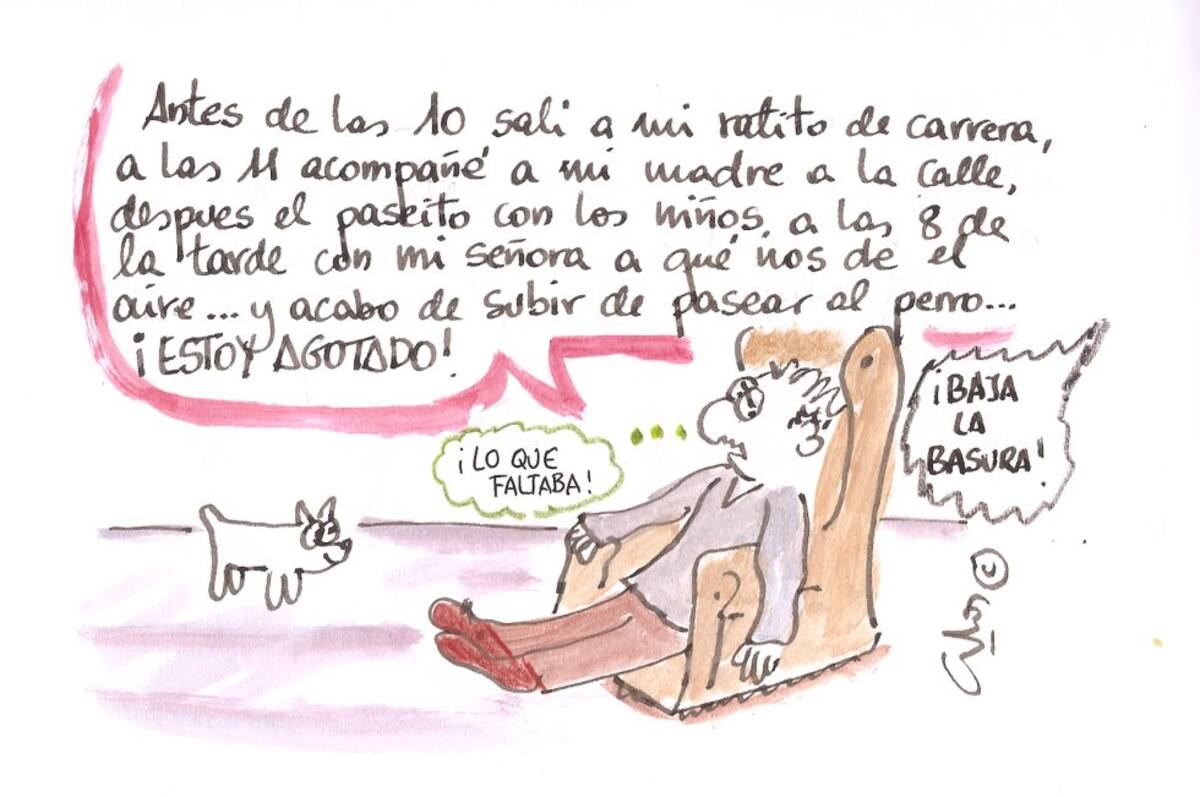 Antes de las 10 sali a mi ratito de carrera,
a las 11 acompañé a mi madre a la calle,
despues el paseito con los niños, a las 8 de
la tarde con mi señora a qué nos de el
aire... y acabo de subir de pasear al perro...
¡ESTOY AGOTADO!
¡LO QUE
FALTABA!
¡BAJA
LA
BASURA!
©